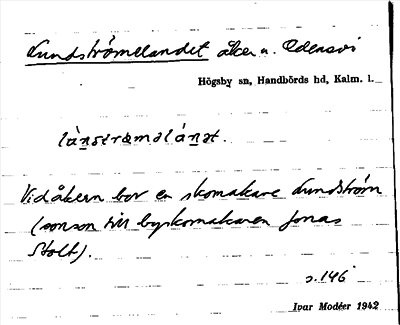 Lundströmelandet åker u. Odensvi
Högsby sn, Handbörds hd, Kalm. l.
lánstrəməlánət.
Vid åkern bor en skomakare Lundström
(sonson till byskomakaren Jonas
Stolt).
s. 146
Ivar Modéer 1942